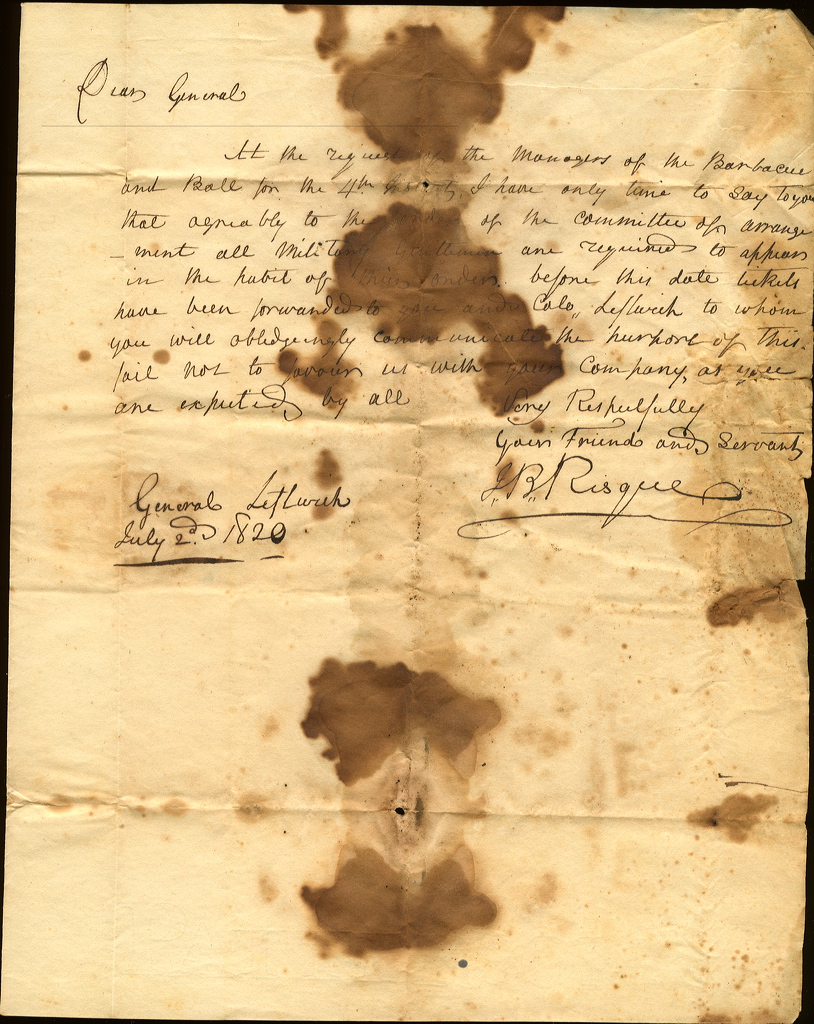 Dear General
At the request of the Managers of the Barbacue
and Ball for the 4th I have only time to say to you
that agreably to the of the committee of arrange
-ment all Military Gentlemen are required to appear
in the habit of their orders. before this date tickets
have been forwarded to you and Colo,, Leftwich to whom
you will obledgeingly communicate the purport of this.
fail not to favour us with your Company, as you
are expected by all Very Respectfully
Your Friend and Servant
J,,B,, Risque
General Leftwich
July 2nd 1820